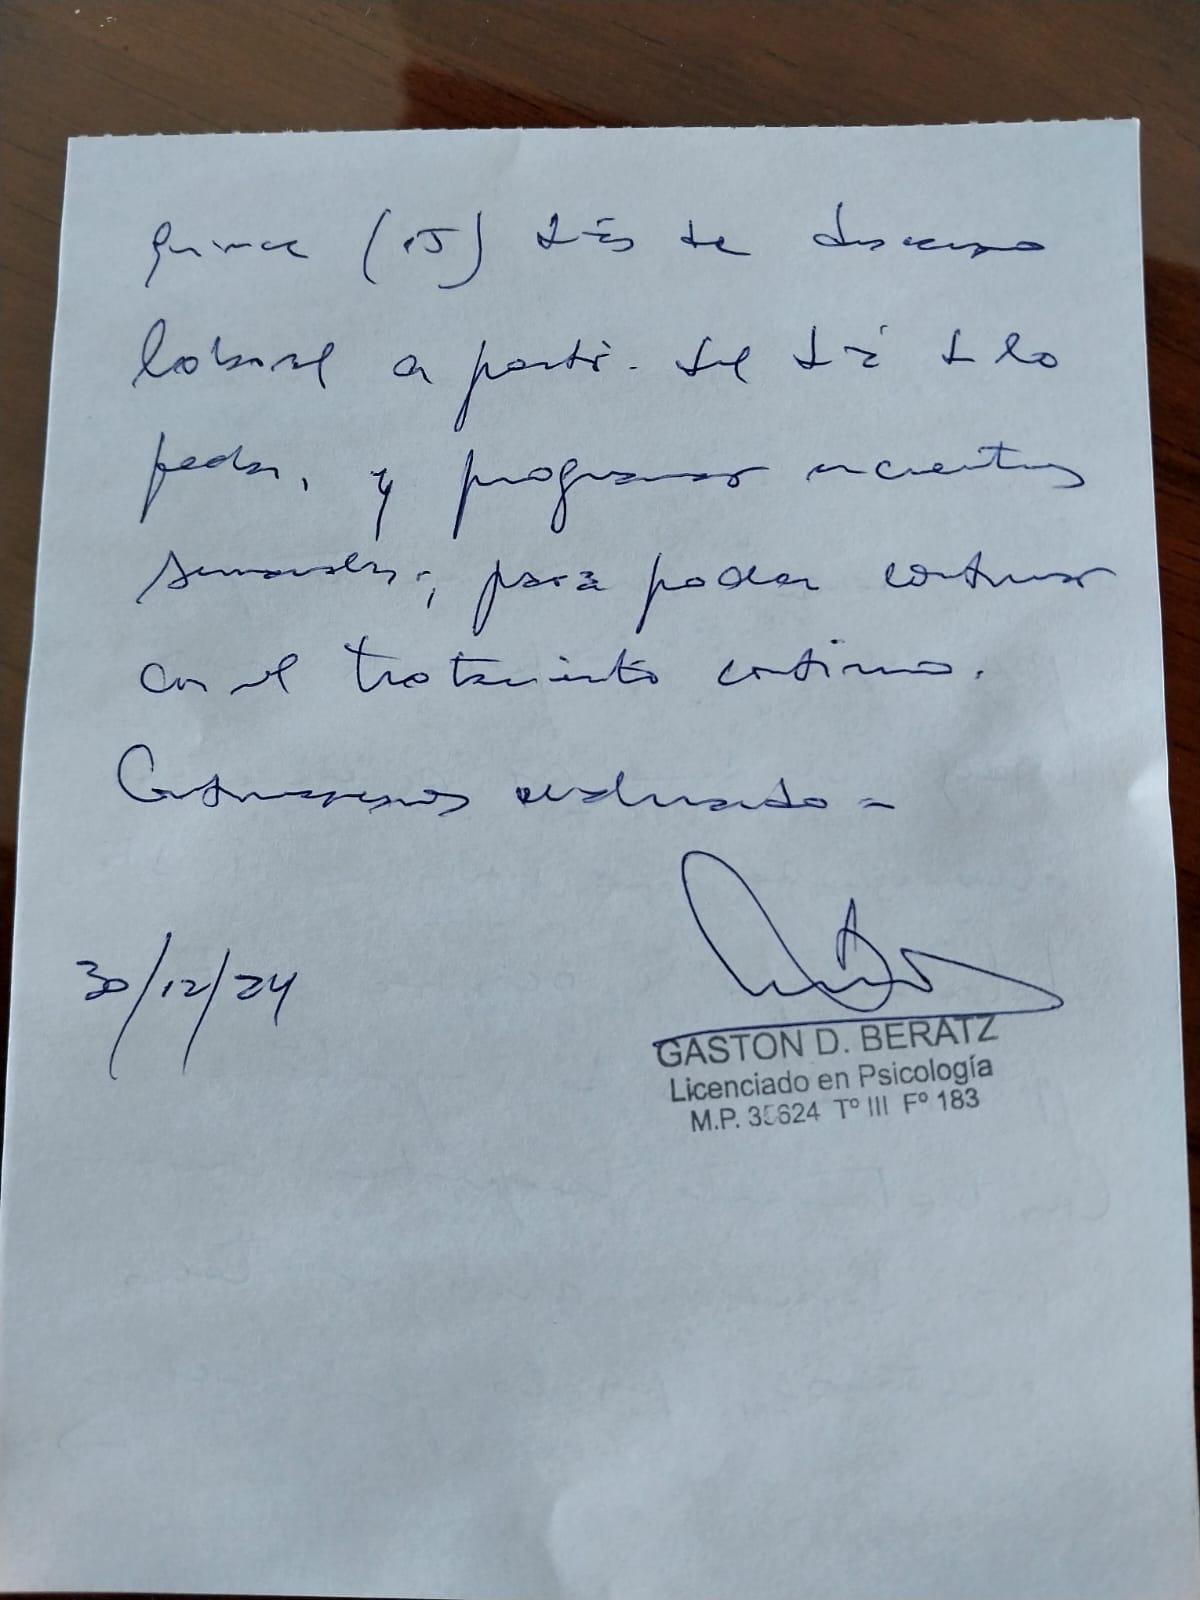 quince (15) días de descanso
laboral a partir del día d la
fecha, y programar encuentros
semanales; para poder continuar
con el tratamiento continuo.
Continuaremos evaluando -
30/12/24
GASTON D. BERATZ
Licenciado en Psicología
M.P. 35624 Tº III Fº 183